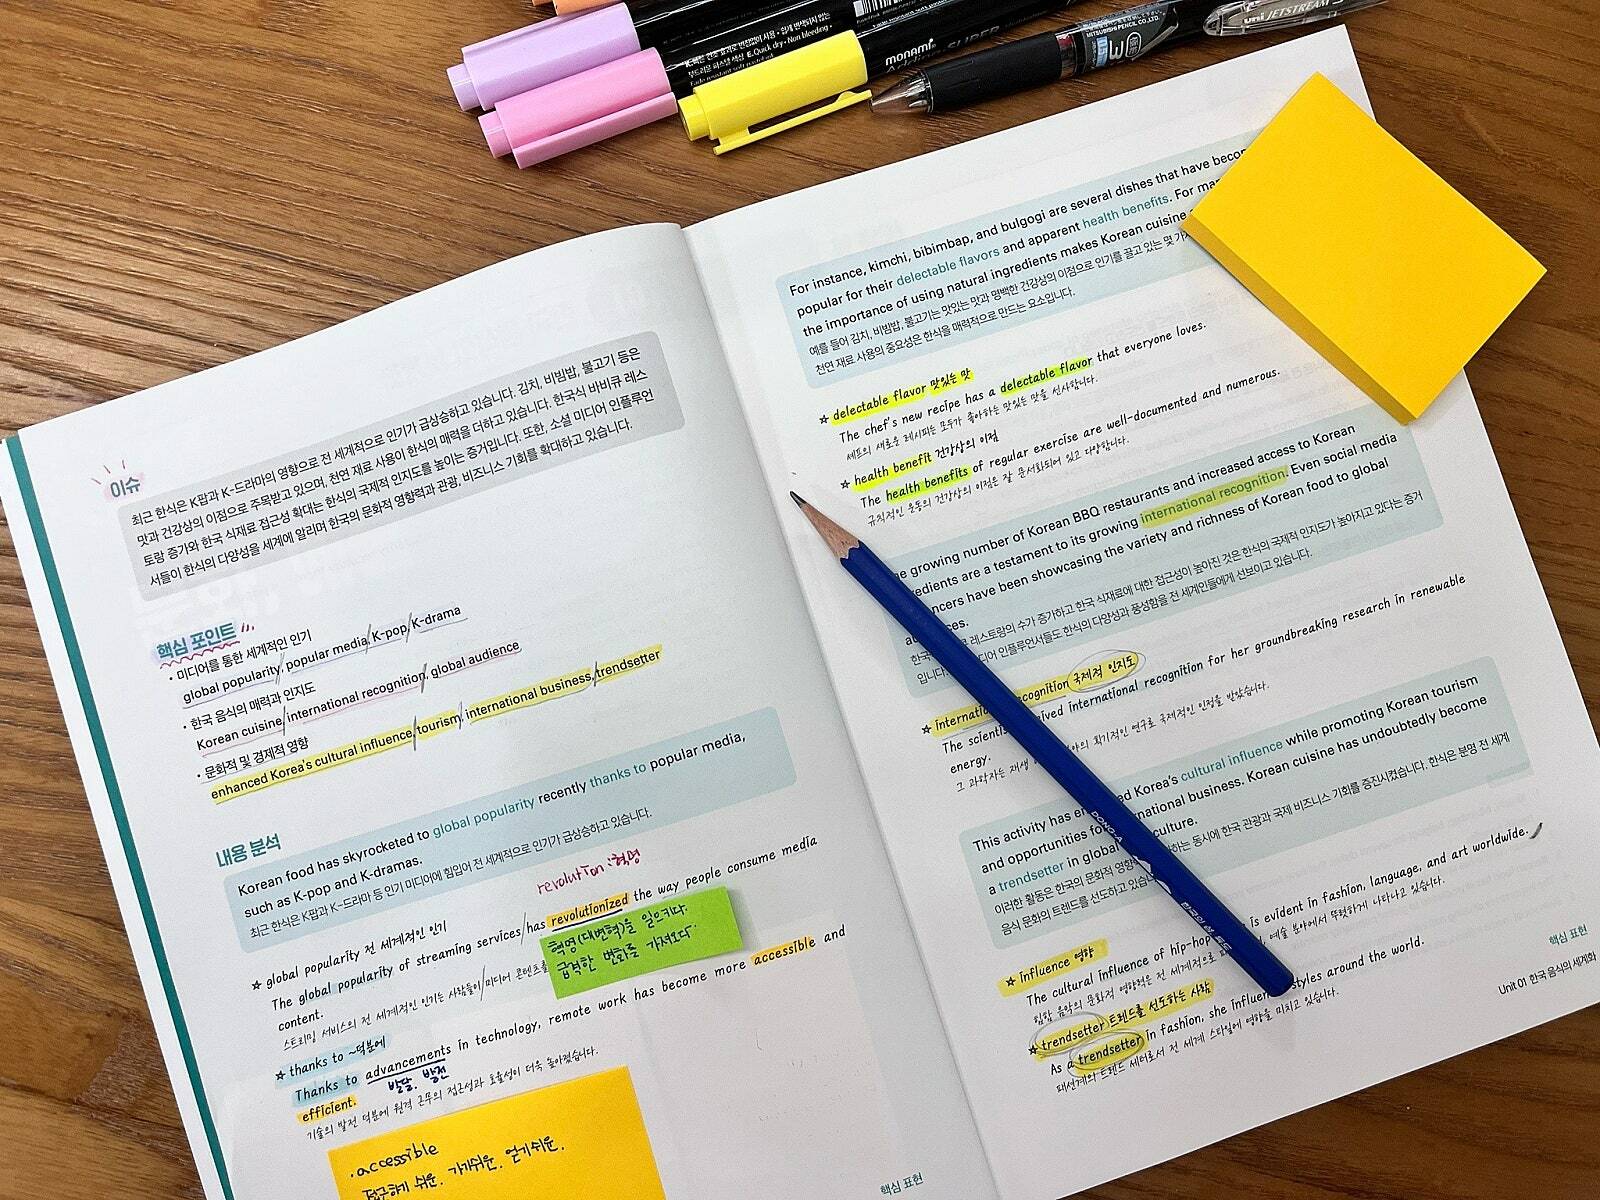 monami
SUPER
uni JETSTREAM
MITSUBISHI PENCIL CO.,LTD.
이슈
최근 한식은 K팝과 K-드라마의 영향으로 전 세계적으로 인기가 급상승하고 있습니다. 김치, 비빔밥, 불고기 등은
맛과 건강상의 이점으로 주목받고 있으며, 천연 재료 사용이 한식의 매력을 더하고 있습니다. 한국식 바비큐 레스
토랑 증가와 한국 식재료 접근성 확대는 한식의 국제적 인지도를 높이는 증거입니다. 또한, 소셜 미디어 인플루언
서들이 한식의 다양성을 세계에 알리며 한국의 문화적 영향력과 관광, 비즈니스 기회를 확대하고 있습니다.
핵심 포인트
• 미디어를 통한 세계적인 인기
global popularity, popular media, K-pop, K-drama
• 한국 음식의 매력과 인지도
Korean cuisine, international recognition, global audience
• 문화적 및 경제적 영향
enhanced Korea's cultural influence, tourism, international business, trendsetter
내용 분석
Korean food has skyrocketed to global popularity recently thanks to popular media,
such as K-pop and K-dramas.
최근 한식은 K팝과 K-드라마 등 인기 미디어에 힘입어 전 세계적으로 인기가 급상승하고 있습니다.
revolution : 혁명
☆ global popularity 전 세계적인 인기
The global popularity of streaming services has revolutionized the way people consume media
content.
스트리밍 서비스의 전 세계적인 인기는 사람들이 미디어 콘텐츠를
혁명(대변혁)을 일으키다.
급격한 변화를 가져오다.
☆ thanks to ~덕분에
Thanks to advancements in technology, remote work has become more accessible and
발달, 발전
efficient.
기술의 발전 덕분에 원격 근무의 접근성과 효율성이 더욱 높아졌습니다.
· accessible
접근하기 쉬운. 가기쉬운. 얻기쉬운.
핵심 표현
For instance, kimchi, bibimbap, and bulgogi are several dishes that have
popular for their delectable flavors and apparent health benefits. For
the importance of using natural ingredients makes Korean cuisine
예를 들어 김치, 비빔밥, 불고기는 맛있는 맛과 명백한 건강상의 이점으로 인기를 끌고 있는 몇
천연 재료 사용의 중요성은 한식을 매력적으로 만드는 요소입니다.
☆ delectable flavor 맛있는 맛
The chef's new recipe has a delectable flavor that everyone loves.
셰프의 새로운 레시피는 모두가 좋아하는 맛있는 맛을 선사합니다.
☆ health benefit 건강상의 이점
The health benefits of regular exercise are well-documented and numerous.
규칙적인 운동의 건강상의 이점은 잘 문서화되어 있고 다양합니다.
growing number of Korean BBQ restaurants and increased access to Korean
are a testament to its growing international recognition. Even social media
have been showcasing the variety and richness of Korean food to global
레스토랑의 수가 증가하고 한국 식재료에 대한 접근성이 높아진 것은 한식의 국제적 인지도가 높아지고 있다는 증거
입니다. 인플루언서들도 한식의 다양성과 풍성함을 전 세계인들에게 선보이고 있습니다.
☆ recognition 국제적 인지도
The international recognition for her groundbreaking research in renewable
energy.
그 과학자는 재생 획기적인 연구로 국제적인 인정을 받았습니다.
This activity has Korea's cultural influence while promoting Korean tourism
and opportunities for business. Korean cuisine has undoubtedly become
a trendsetter in global
이러한 활동은 한국의 문화적 동시에 한국 관광과 국제 비즈니스 기회를 증진시켰습니다. 한식은 분명 전 세계
음식 문화의 트렌드를 선도하고
☆ influence 영향
The cultural influence of is evident in fashion, language, and art worldwide.
힙합 음악의 문화적 영향력은 전 세계적으로 예술 분야에서 뚜렷하게 나타나고 있습니다.
☆ trendsetter 트렌드를 선도하는 사람
As a trendsetter in fashion, she styles around the world.
패션계의 트렌드 세터로서 전 세계 스타일에 영향을 미치고 있습니다.
핵심 표현
Unit 01 한국 음식의 세계화
DONG-A